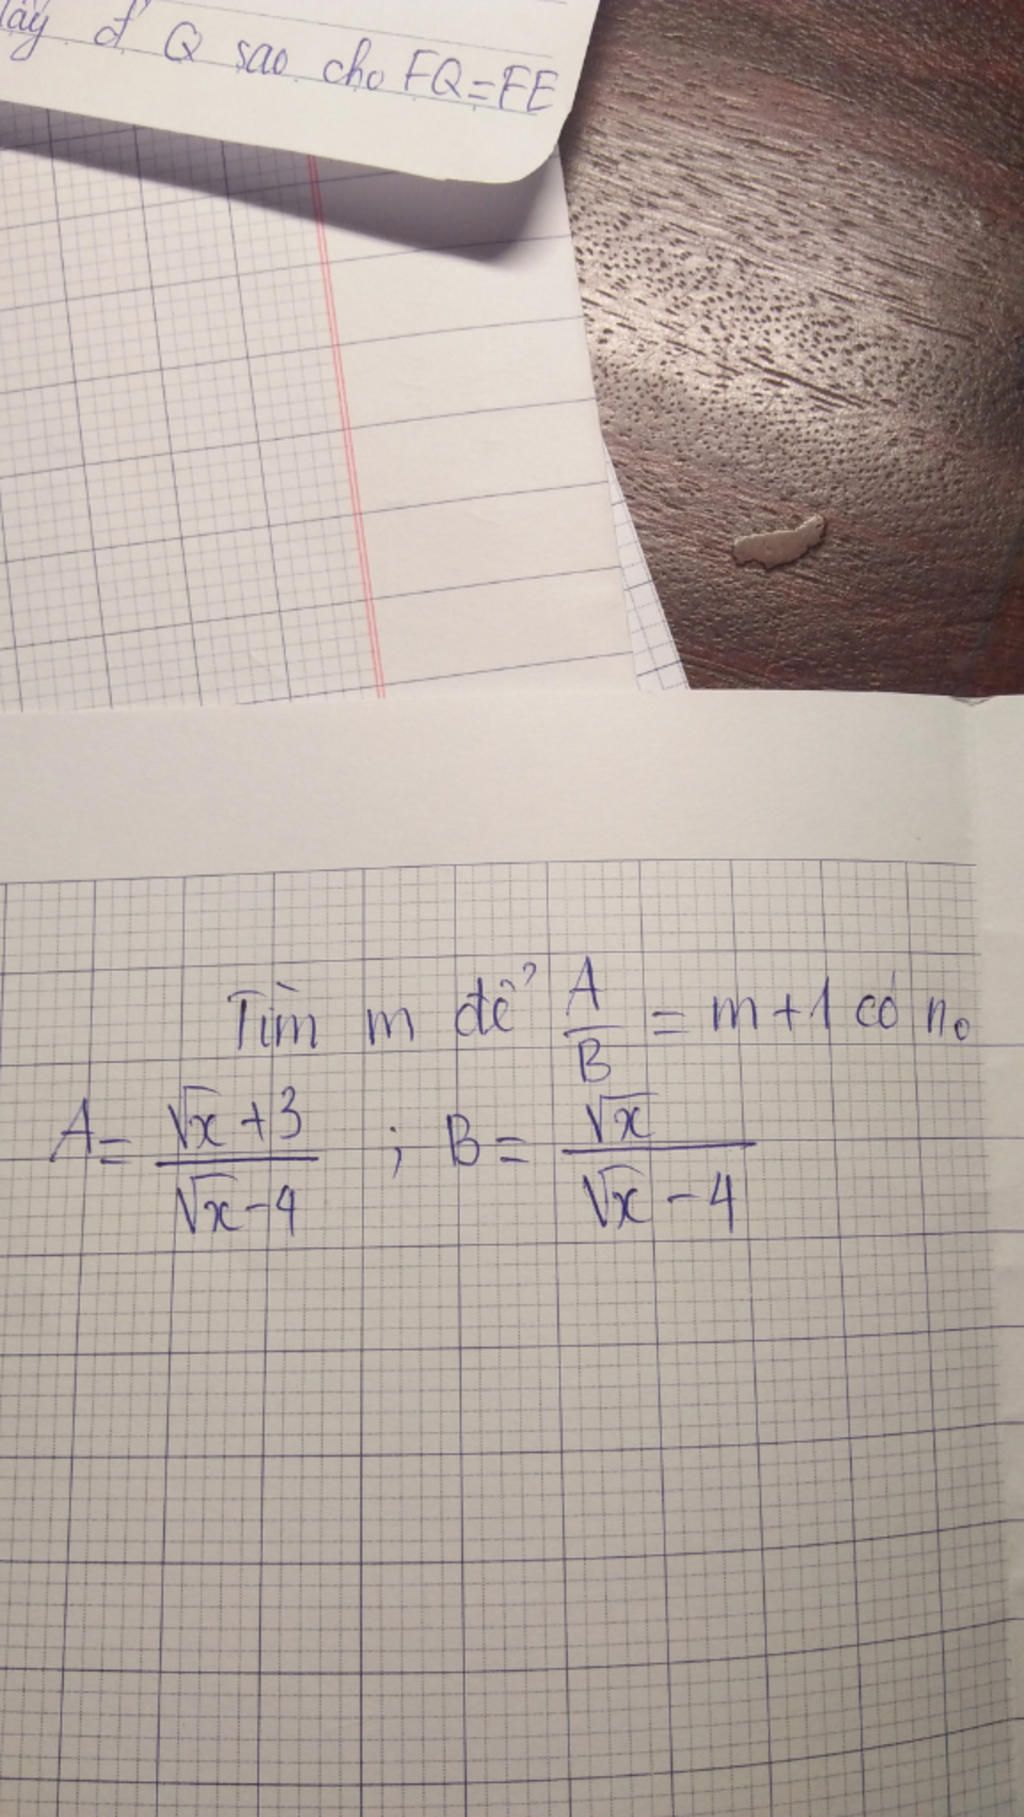 lấy đ' Q sao cho FQ=FE
Tìm m để A/B = m+1 có n₀
A= (√x+3)/(√x-4) ; B= √x/(√x-4)